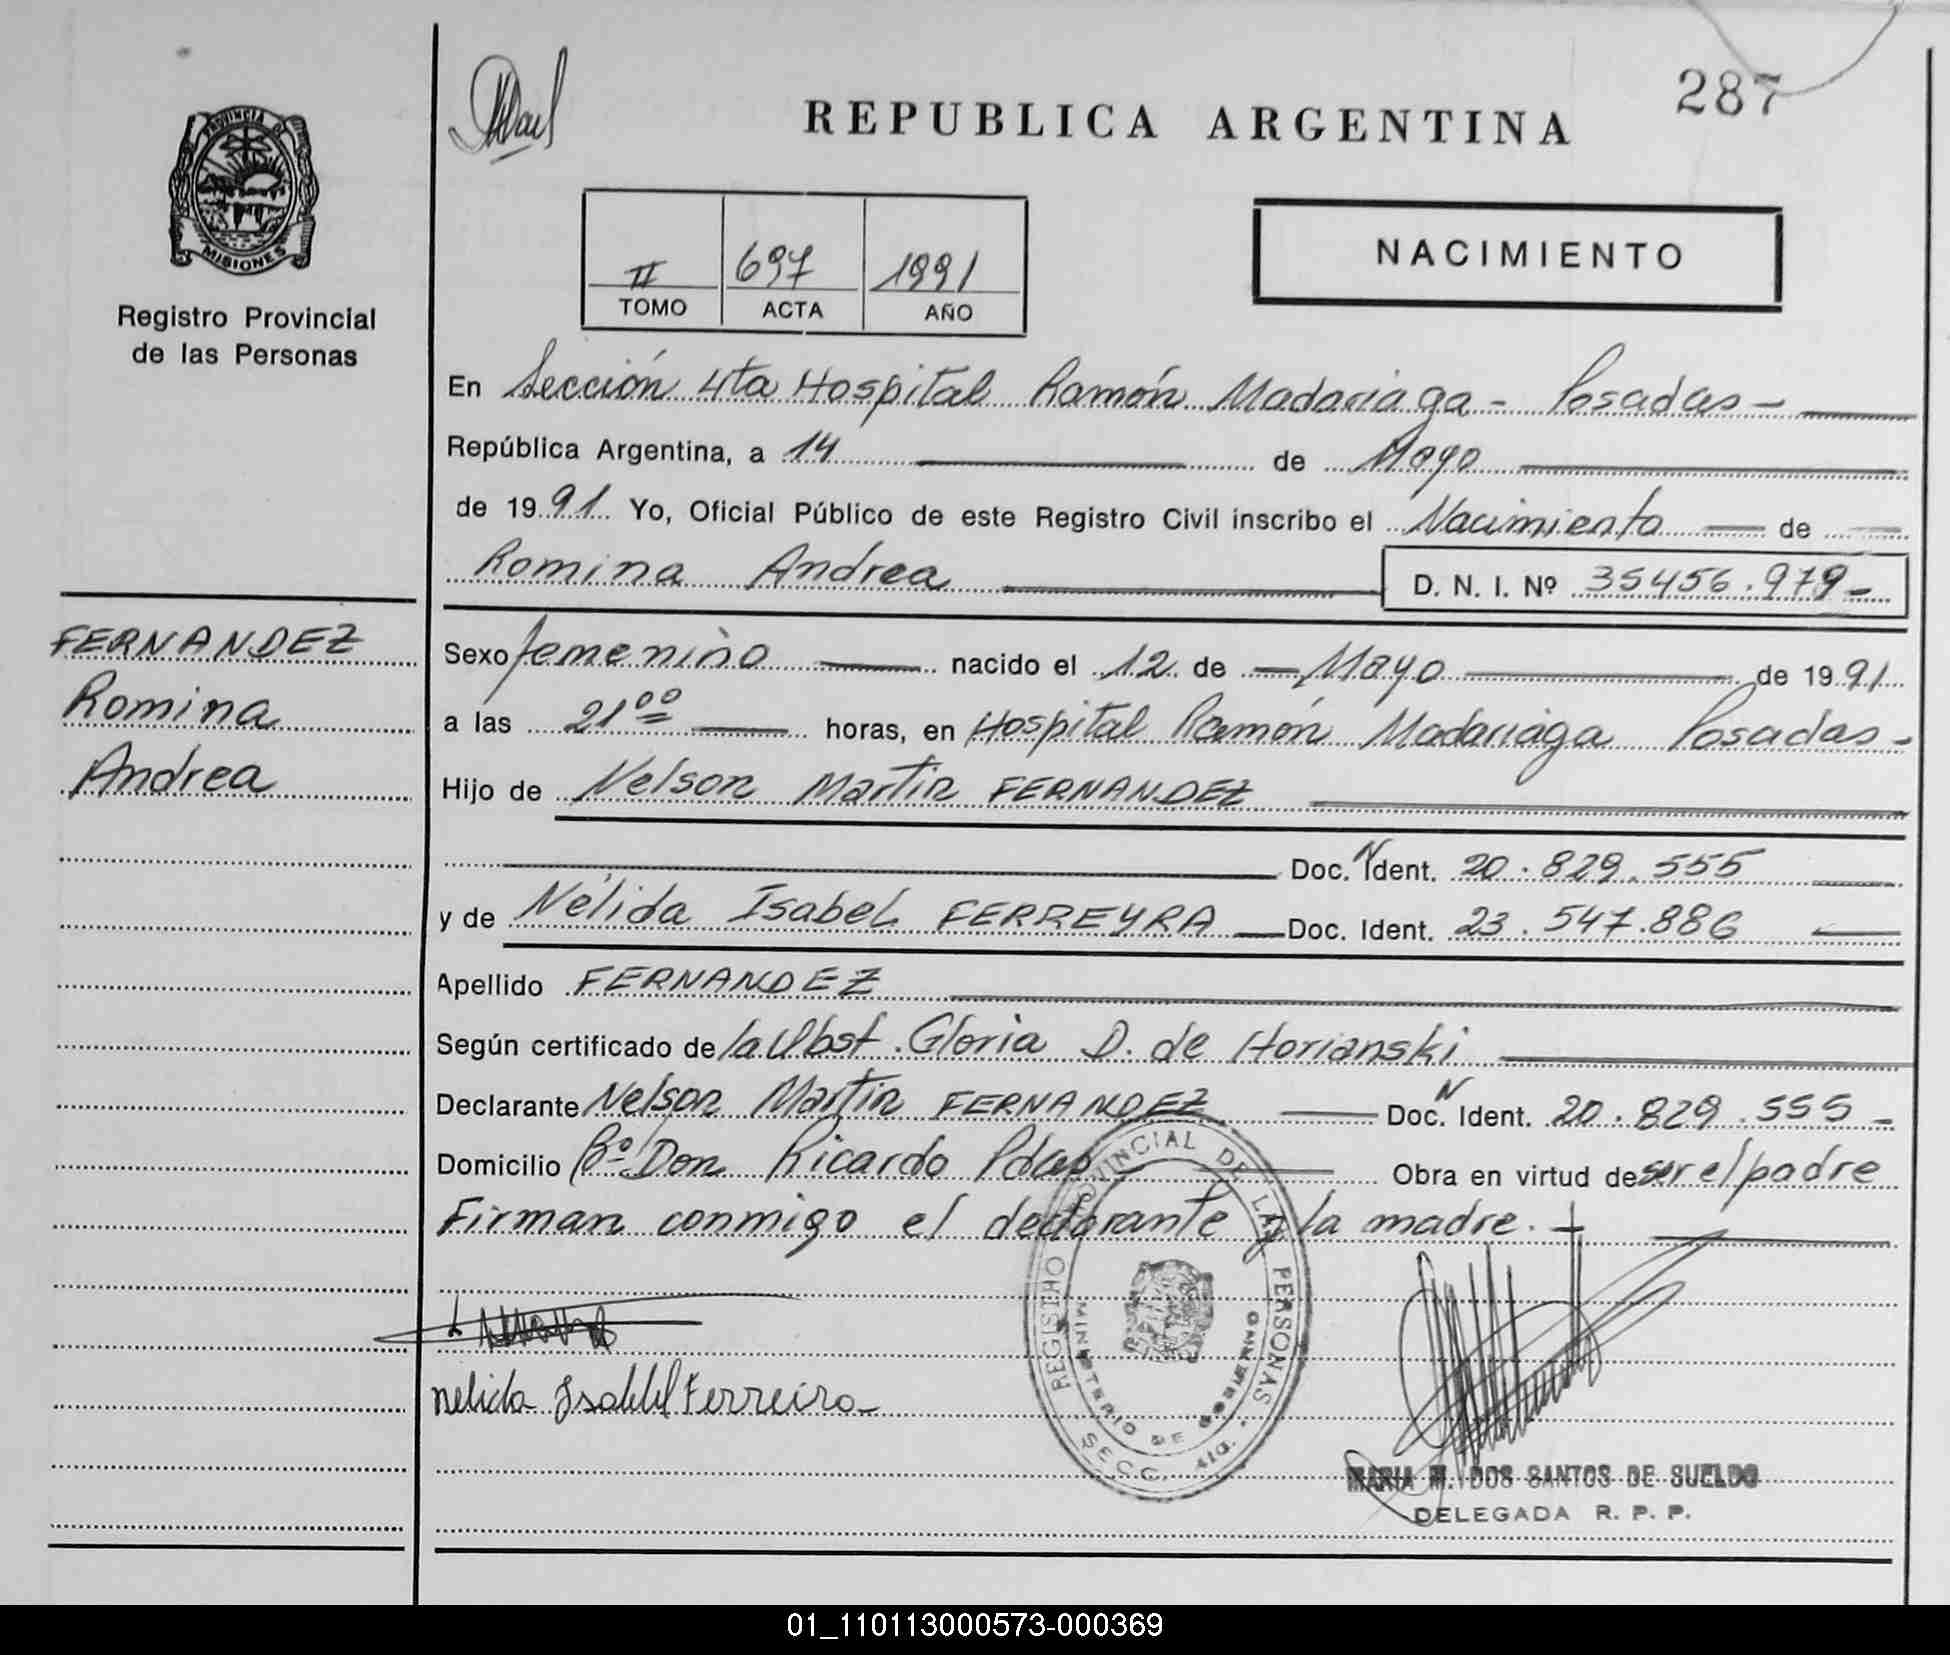 287
REPUBLICA ARGENTINA
PROVINCIA DE
MISIONES
Registro Provincial
de las Personas
II 697 1991
TOMO ACTA AÑO
NACIMIENTO
En Sección 4ta Hospital Ramón Madariaga - Posadas -
República Argentina, a 14 de Mayo
de 1991 Yo, Oficial Público de este Registro Civil inscribo el Nacimiento de
Romina Andrea D. N. I. Nº 35456.979-
FERNANDEZ
Romina
Andrea
Sexo femenino nacido el 12 de Mayo de 1991
a las 21⁰⁰ horas, en Hospital Ramón Madariaga Posadas-
Hijo de Nelson Martin FERNANDEZ
Doc. N Ident. 20.829.555
y de Nélida Isabel FERREYRA Doc. Ident. 23.547.886
Apellido FERNANDEZ
Según certificado de la Obst. Gloria D. de Horianski
Declarante Nelson Martin FERNANDEZ Doc. N Ident. 20.829.555-
Domicilio Bº Don Ricardo Pdas - Obra en virtud de ser el padre
Firman conmigo el declarante y la madre. -
Nelida Isabel Ferreira
REGISTRO PROVINCIAL DE LAS PERSONAS
MINISTERIO DE GOBIERNO
SECC. 4ta.
MARIA M. DOS SANTOS DE SUELDO
DELEGADA R. P. P.
01_110113000573-000369